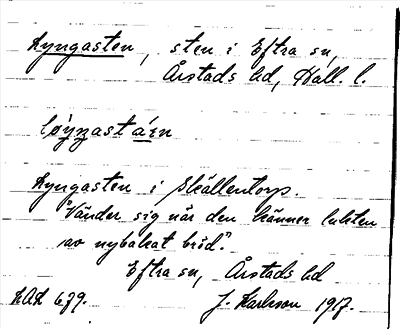 Lyngasten, sten i Eftra sn,
Årstads hd, Hall. l.
Lyngasten i Skällentorp.
"Vänder sig när den känner lukten
av nybakat bröd".
Eftra sn, Årstads hd
LAL 679. J. Karlsson 1917.